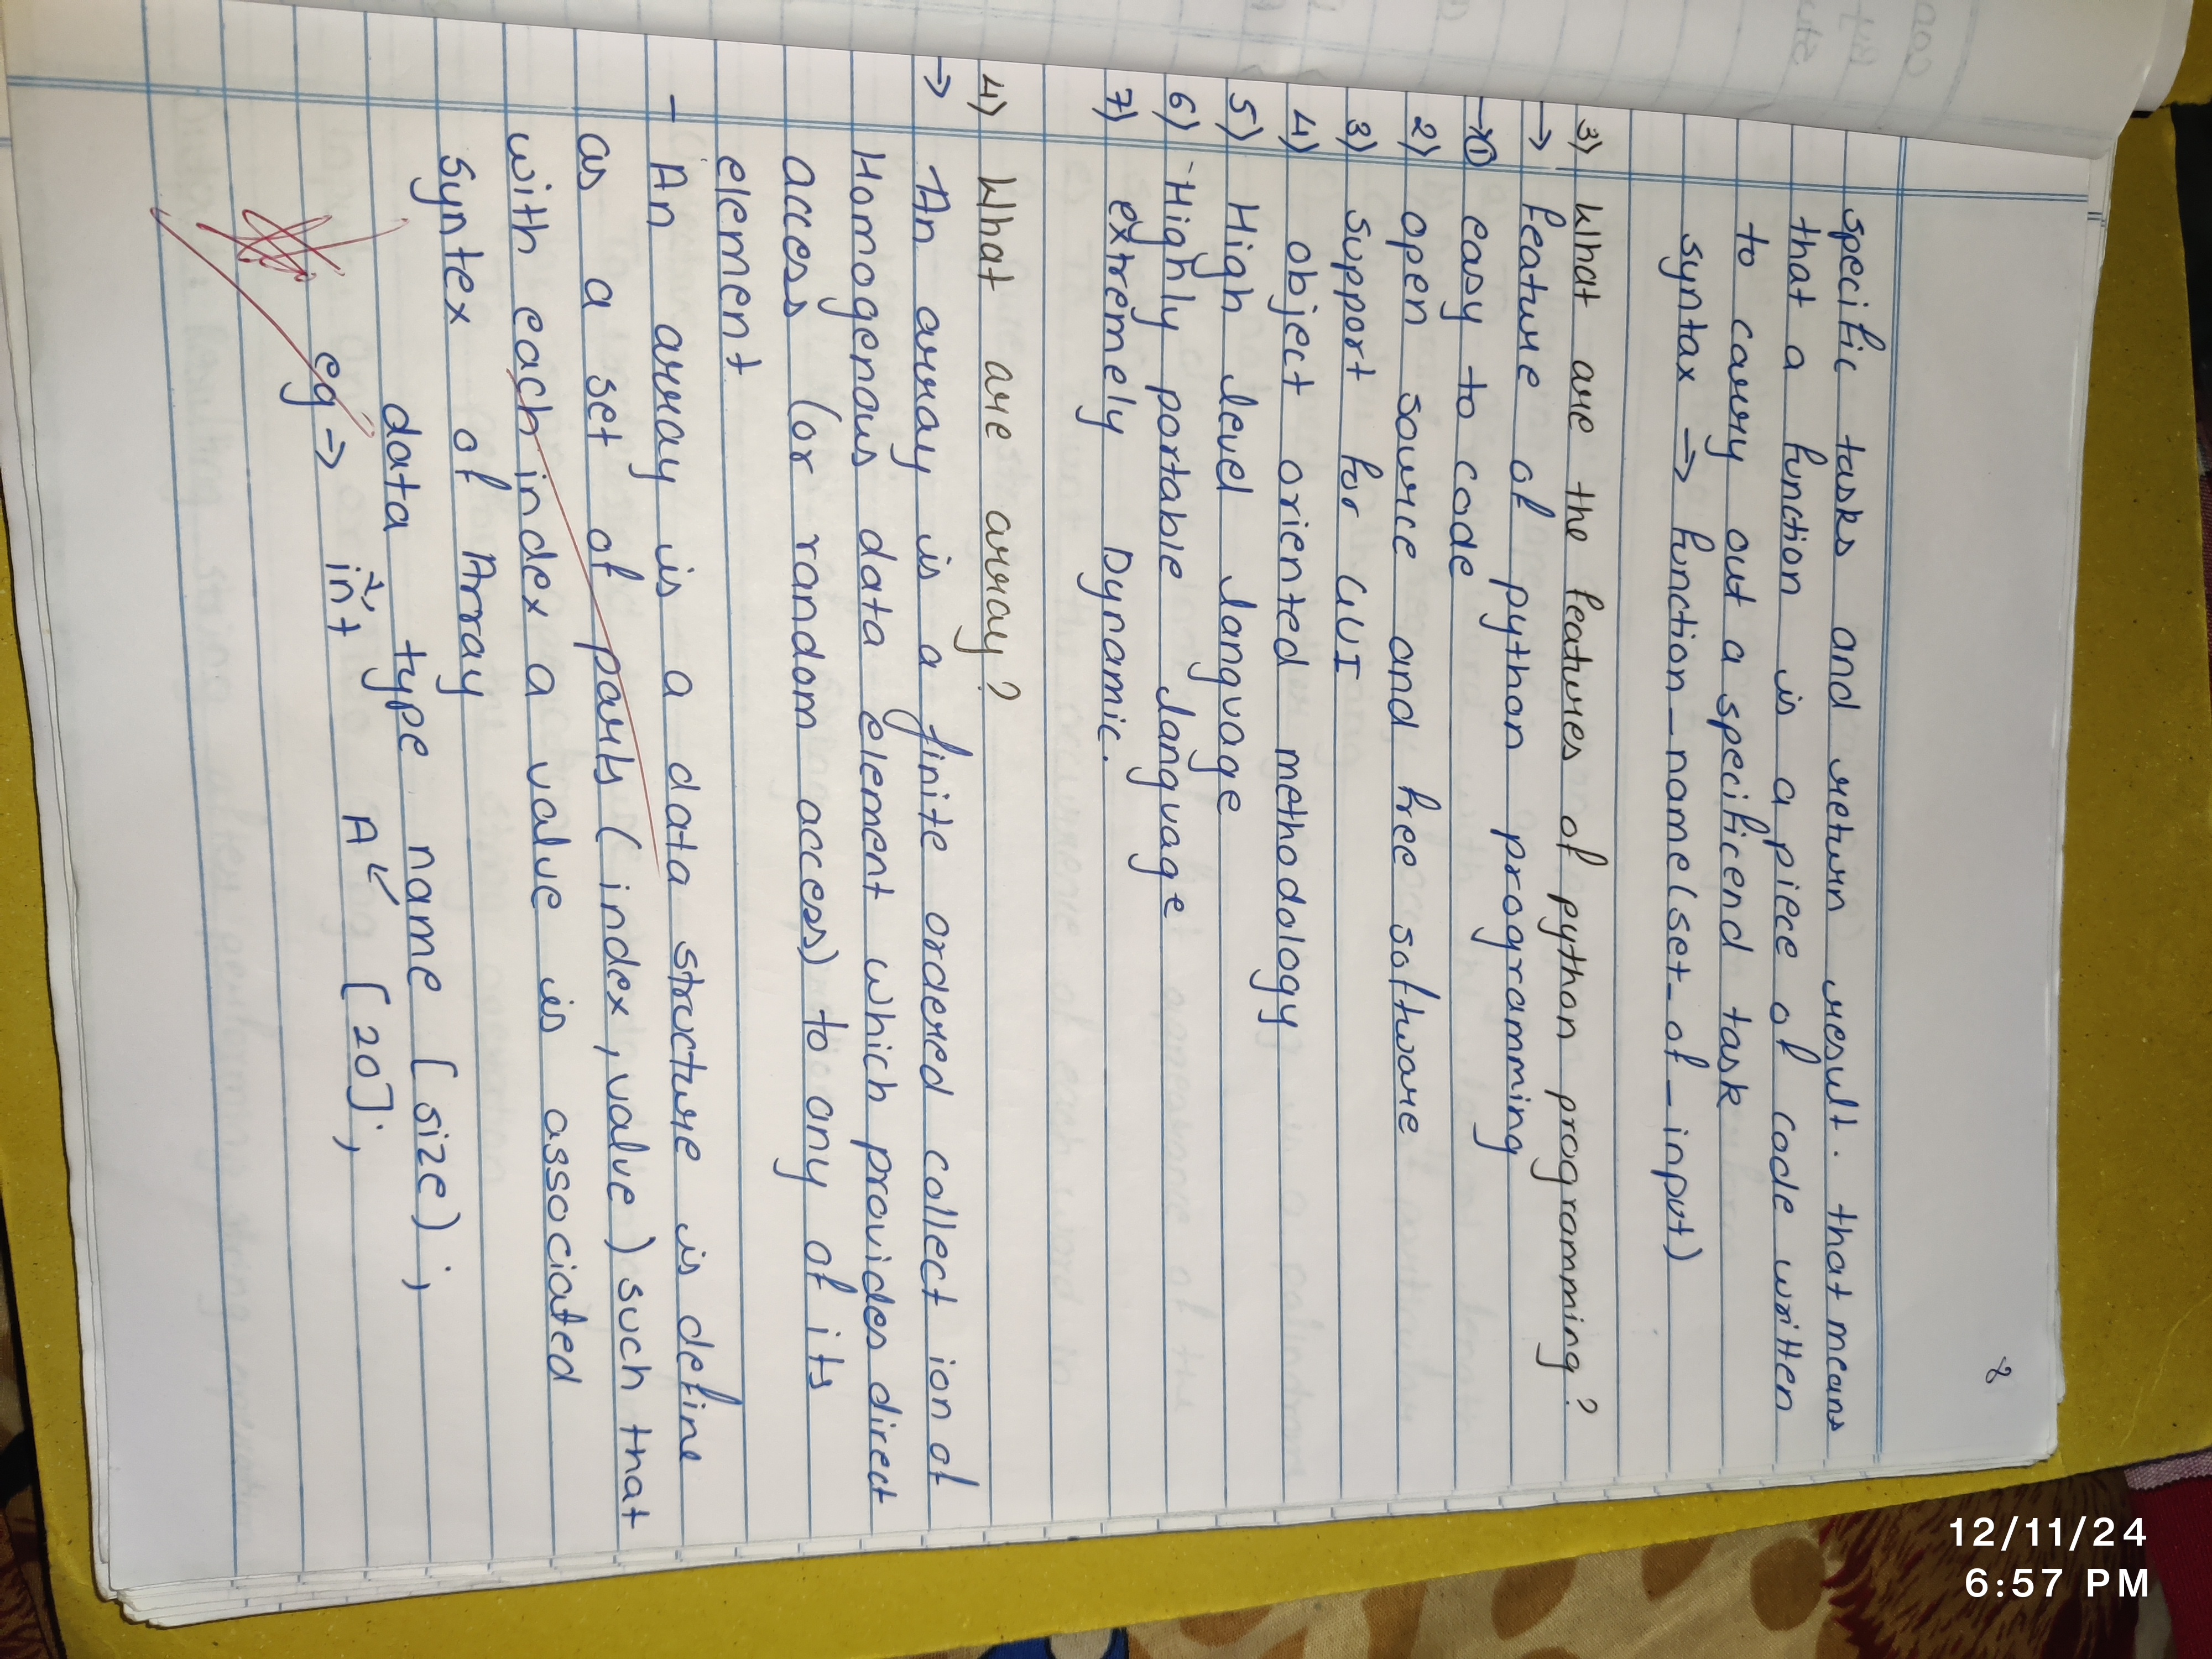 8
specific tasks and return result. that means
that a function is a piece of code written
to carry out a specificend task
syntax => function_name(set_of_input)
3) What are the features of python programming?
-> feature of python programming
1) easy to code
2) open source and free software
3) support for GUI
4) object oriented methodology
5) High level language
6) - Highly portable language
7) extremely Dynamic.
4) What are array?
=> An array is a finite ordered collect ion of
Homogenous data element which provides direct
acces (or random acces) to any of its
element
- An array is a data structure is define
as a set of pairs (index, value) such that
with each index a value is associated
Syntex of Array
data type name [size];
eg => int A [20];
12/11/24
6:57 PM